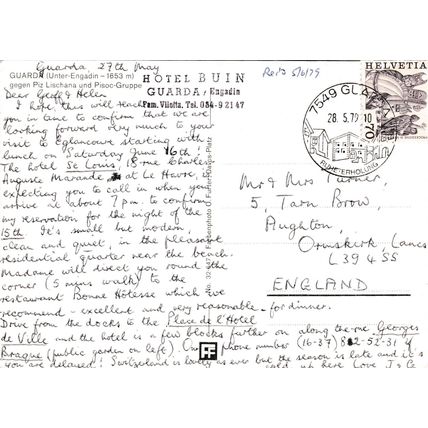 Guarda 27th May
GUARDA (Unter-Engadin - 1653 m)
gegen Piz Lischana und Pisoc-Gruppe
HOTEL BUIN
GUARDA / Engadin
Fam. Vilotta, Tel. 084-9 21 47
Rec'd 5/6/79
HELVETIA
70
7549 GUARDA
28. 5.79
RUHE ERHOLUNG
Dear Geoff & Helen
I hope this will reach
you in time to confirm that we are
looking forward very much to your
visit to Eglancourt starting with
lunch on Saturday June 16th. !
The hotel St Louis, 18 rue Charles
Auguste Marande at Le Havre,
expecting you to call in when you
arrive at about 7pm. to confirm
my reservation for the night of the
15th. It's small but modern,
clean and quiet, in the pleasant
residential quarter near the beach.
Madame will direct you round the
corner (5 mins walk) to the
restaurant Bonne Hôtesse which we
recommend - excellent and very reasonable - for dinner.
Drive from the docks to the Place de l'Hotel
de Ville and the hotel is a few blocks further on along the rue Georges
Braque (public garden on left). Our phone number (16-37) 82-52-31 if
you are delayed! Switzerland is lovely as ever but the season is late and it's
cold up here Love J
Mr & Mrs Turner,
5, Tarn Brow,
Aughton,
Ormskirk, Lancs
L39 4SS
ENGLAND